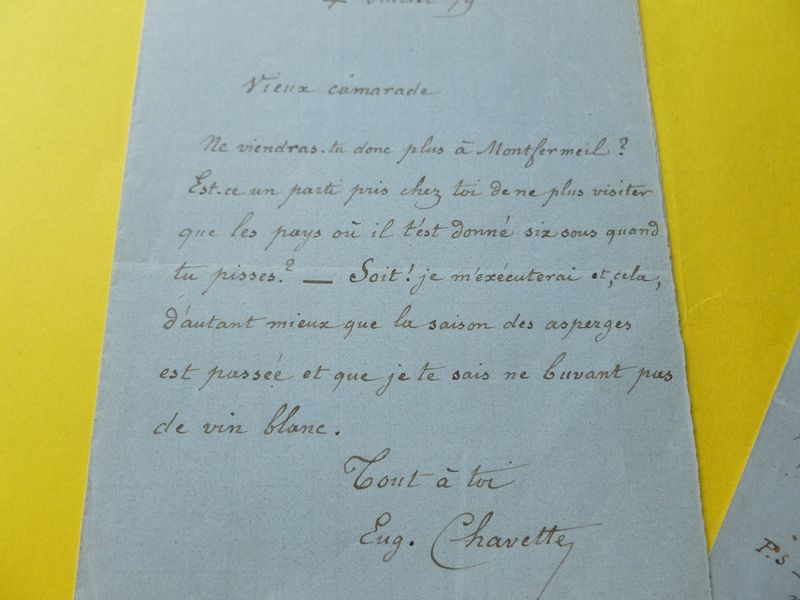 Vieux camarade
Ne viendras-tu donc plus à Montfermeil ?
Est-ce un parti pris chez toi de ne plus visiter
que les pays où il t'est donné six sous quand
tu pisses ? — Soit ! je m'exécuterai et, cela,
d'autant mieux que la saison des asperges
est passée et que je te sais ne buvant pas
de vin blanc.
Tout à toi
Eug. Chavette
P.S